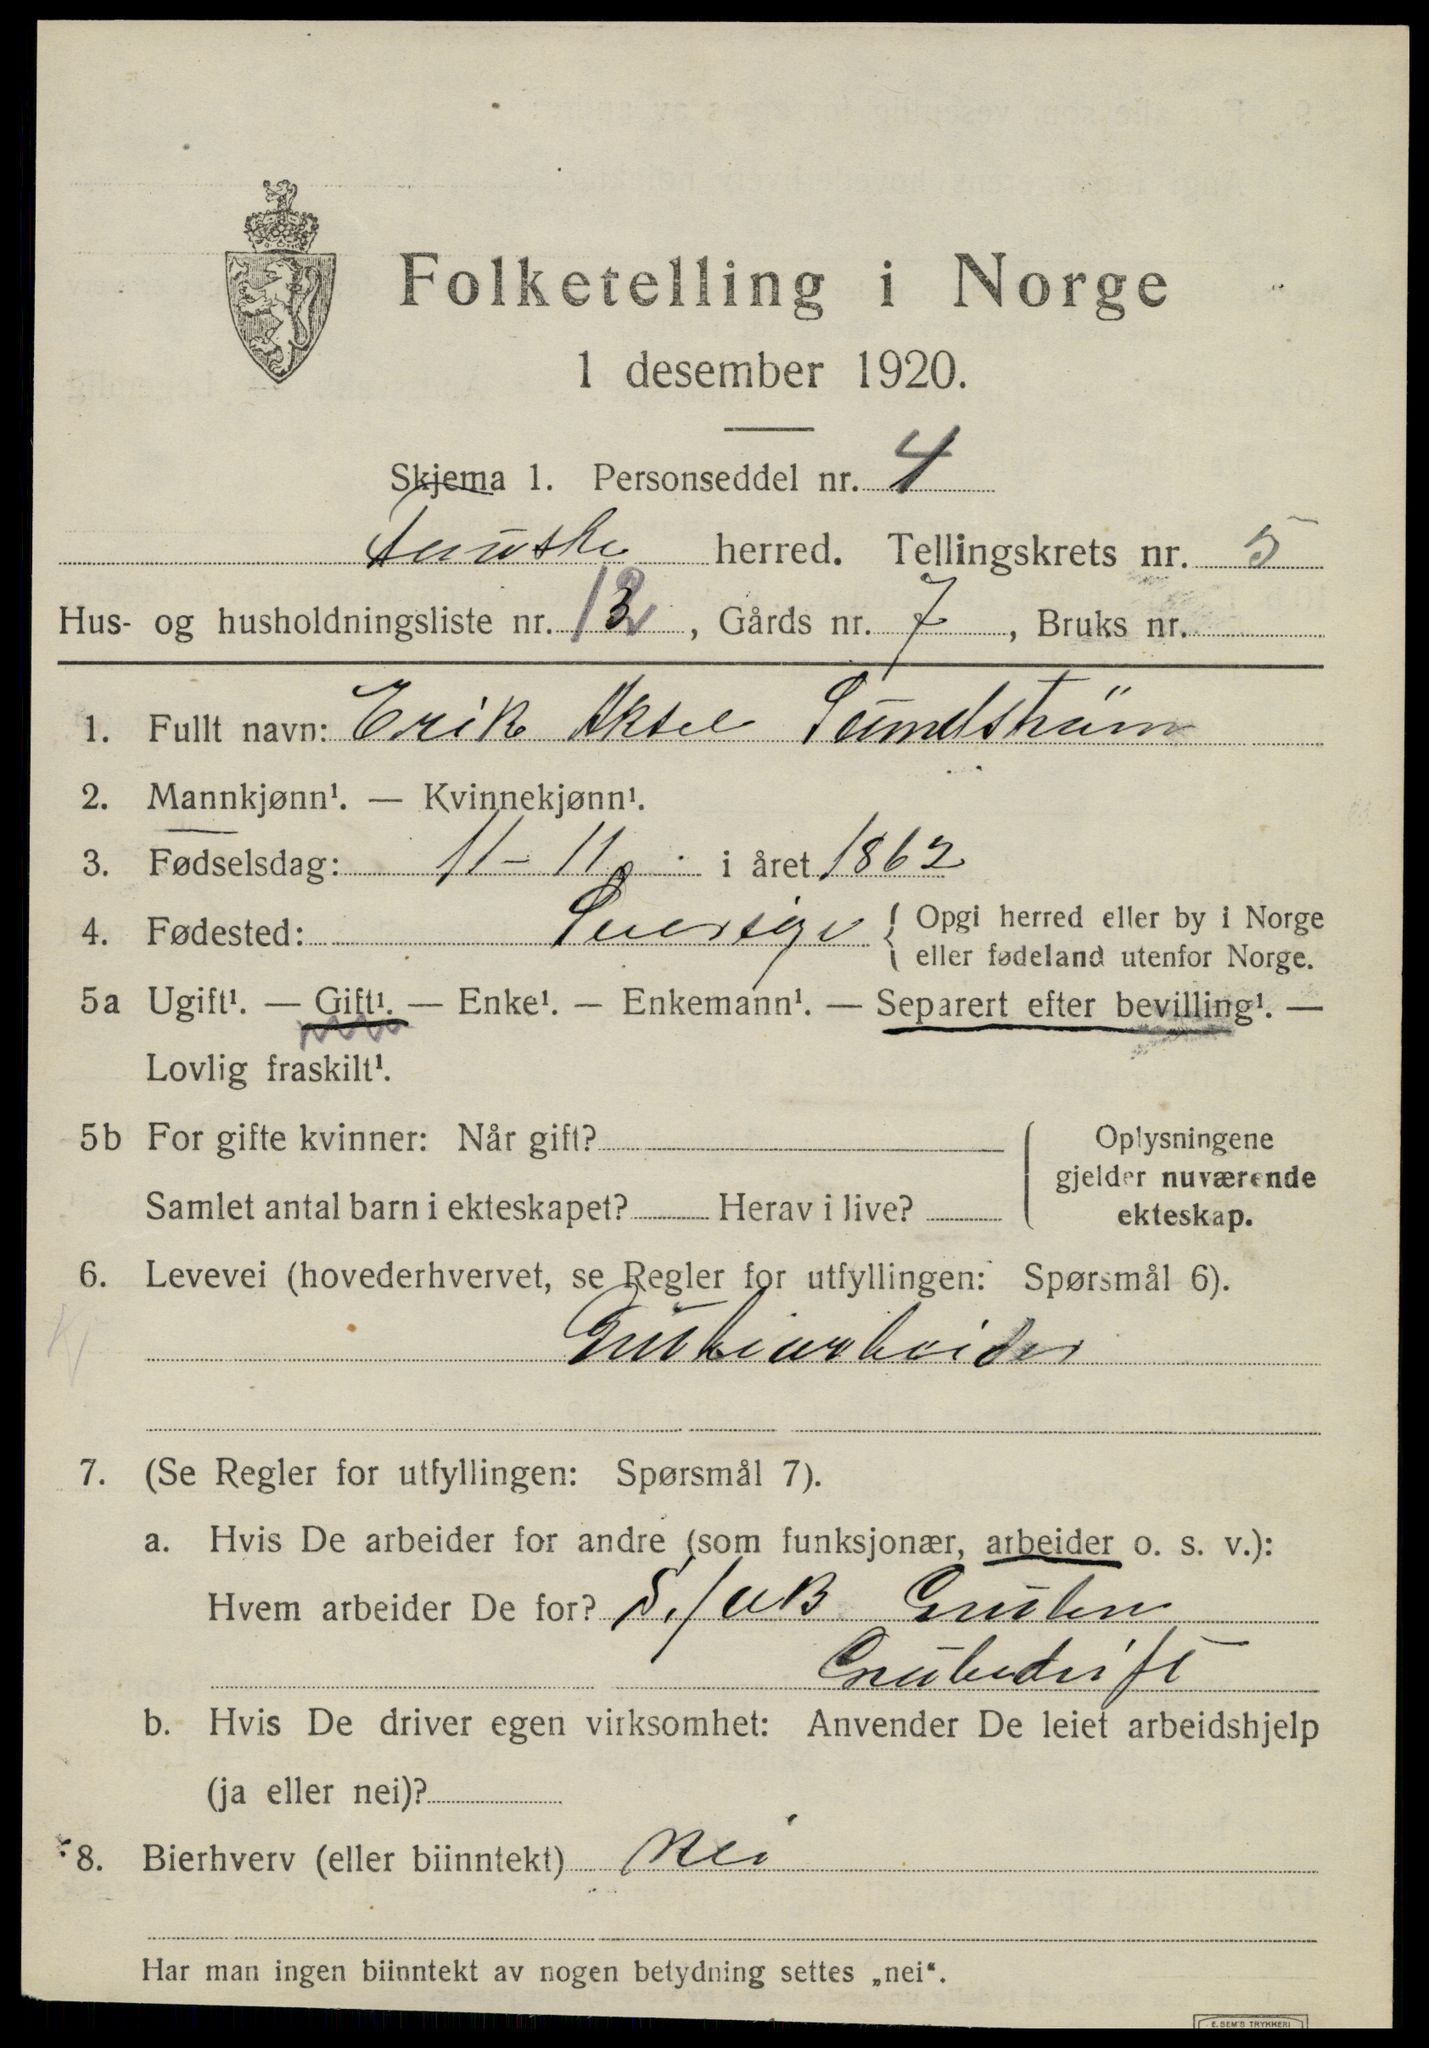 Folketelling i Norge
1 desember 1920.
Skjema 1. Personseddel nr. 4
Fauske herred. Tellingskrets nr. 5
Hus- og husholdningsliste nr. 12, Gårds nr. 7, Bruks nr.
1. Fullt navn: Erik Aksel Sundström
2. Mannkjønn¹. — Kvinnekjønn¹.
3. Fødselsdag: 11 - 11 i året 1862
4. Fødested: Sverige { Opgi herred eller by i Norge
eller fødeland utenfor Norge.
5a Ugift¹. — Gift¹. — Enke¹. — Enkemann¹. — Separert efter bevilling¹. —
Lovlig fraskilt¹.
5b For gifte kvinner: Når gift?
Samlet antal barn i ekteskapet? Herav i live?
Oplysningene
gjelder nuværende
ekteskap.
6. Levevei (hovederhvervet, se Regler for utfyllingen: Spørsmål 6).
Grubearbeider
7. (Se Regler for utfyllingen: Spørsmål 7).
a. Hvis De arbeider for andre (som funksjonær, arbeider o. s. v.):
Hvem arbeider De for? Gruben
Grubedrift
b. Hvis De driver egen virksomhet: Anvender De leiet arbeidshjelp
(ja eller nei)?
8. Bierhverv (eller biinntekt) Nei
Har man ingen biinntekt av nogen betydning settes „nei“.
E. SEM'S TRYKKERI